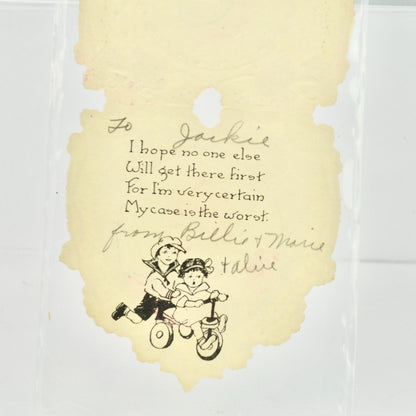 To Jackie
I hope no one else
Will get there first
For I'm very certain
My case is the worst.
from Billie & Marie
& alice